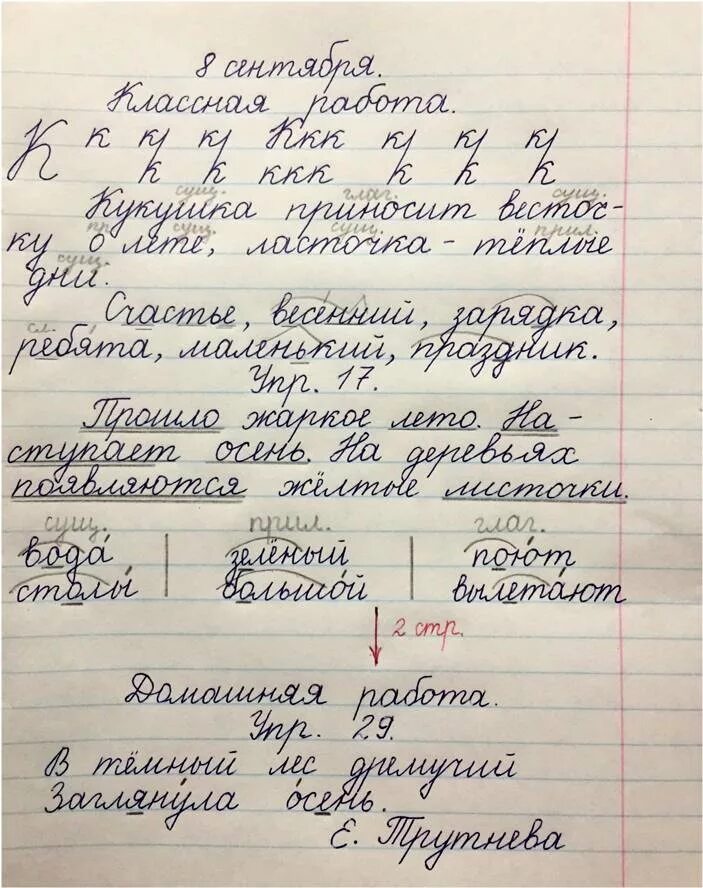 8 сентября.
Классная работа.
К к к к Ккк к к к
к к ккк к к к
сущ. глаг. сущ.
Кукушка приносит весточ-
пр. сущ. сущ. прил.
ку о лете, ласточка - тёплые
сущ.
дни.
Счастье, весенний, зарядка,
сл.
ребята, маленький, праздник.
Упр. 17.
Прошло жаркое лето. На-
ступает осень. На деревьях
появляются жёлтые листочки.
сущ. прил. глаг.
вода́ | зелёный | пою́т
столы́ | большо́й | вылета́ют
2 стр.
Домашняя работа.
Упр. 29.
В тёмный лес дремучий
Заглянула о́сень.
Е. Трутнева